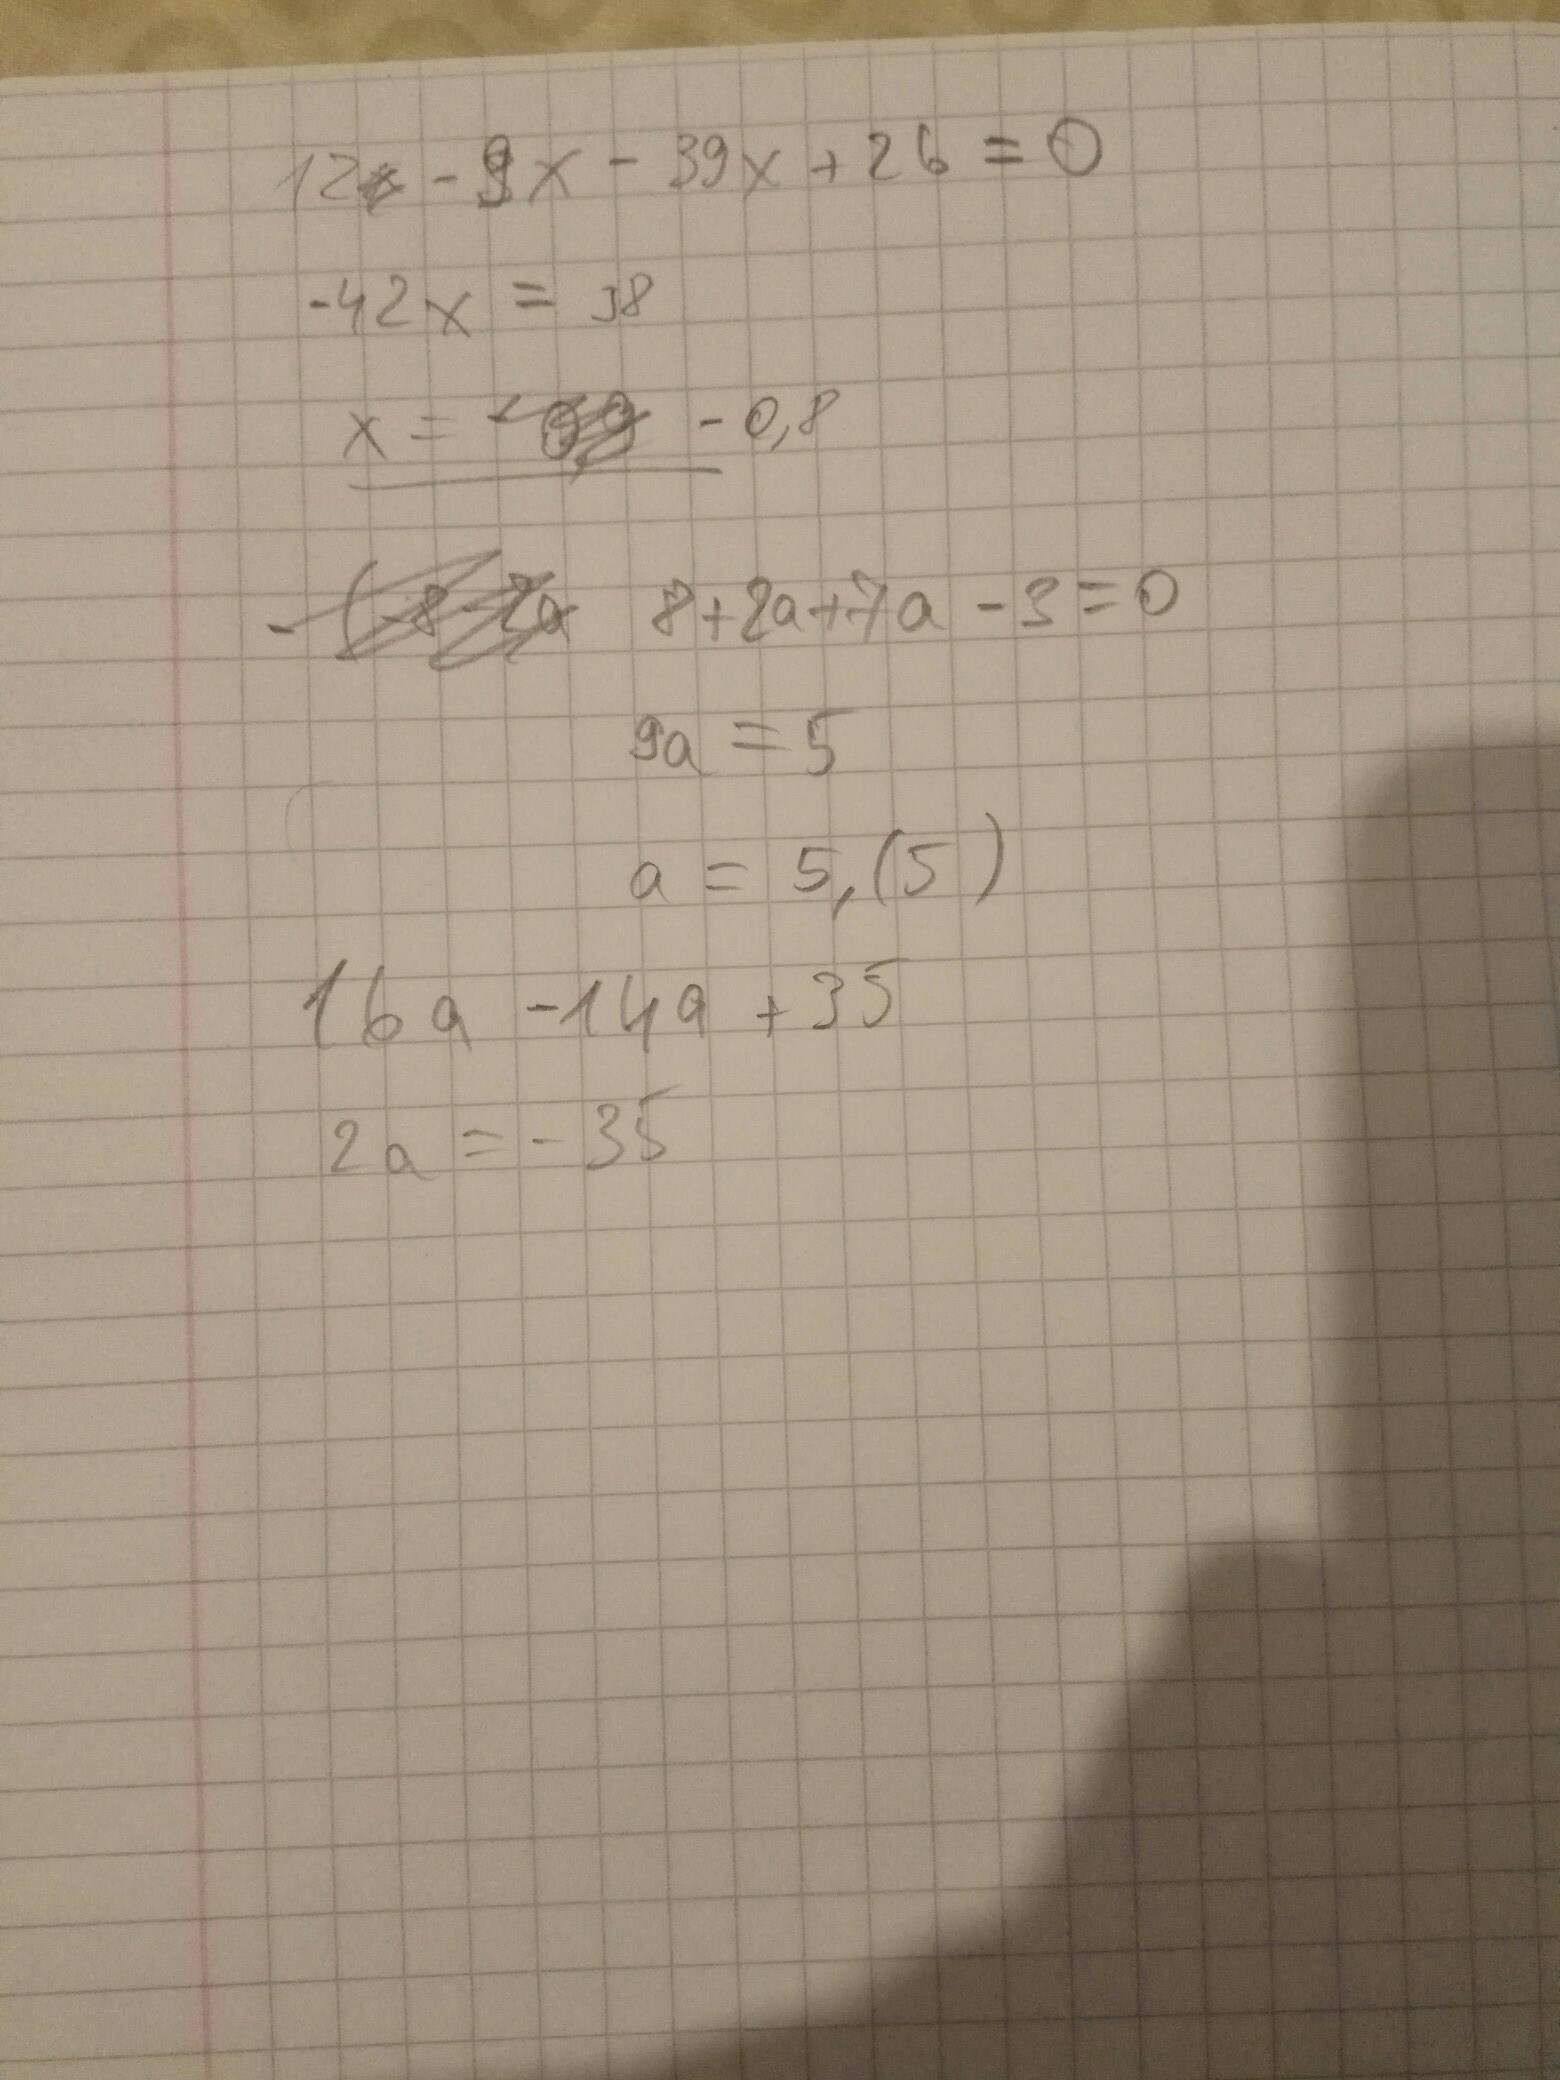 12 - 9x - 39x + 26 = 0
-42x = 38
x = - 0,8
8+2a+7a - 3 = 0
9a = 5
a = 5,(5)
16a - 14a + 35
2a = - 35